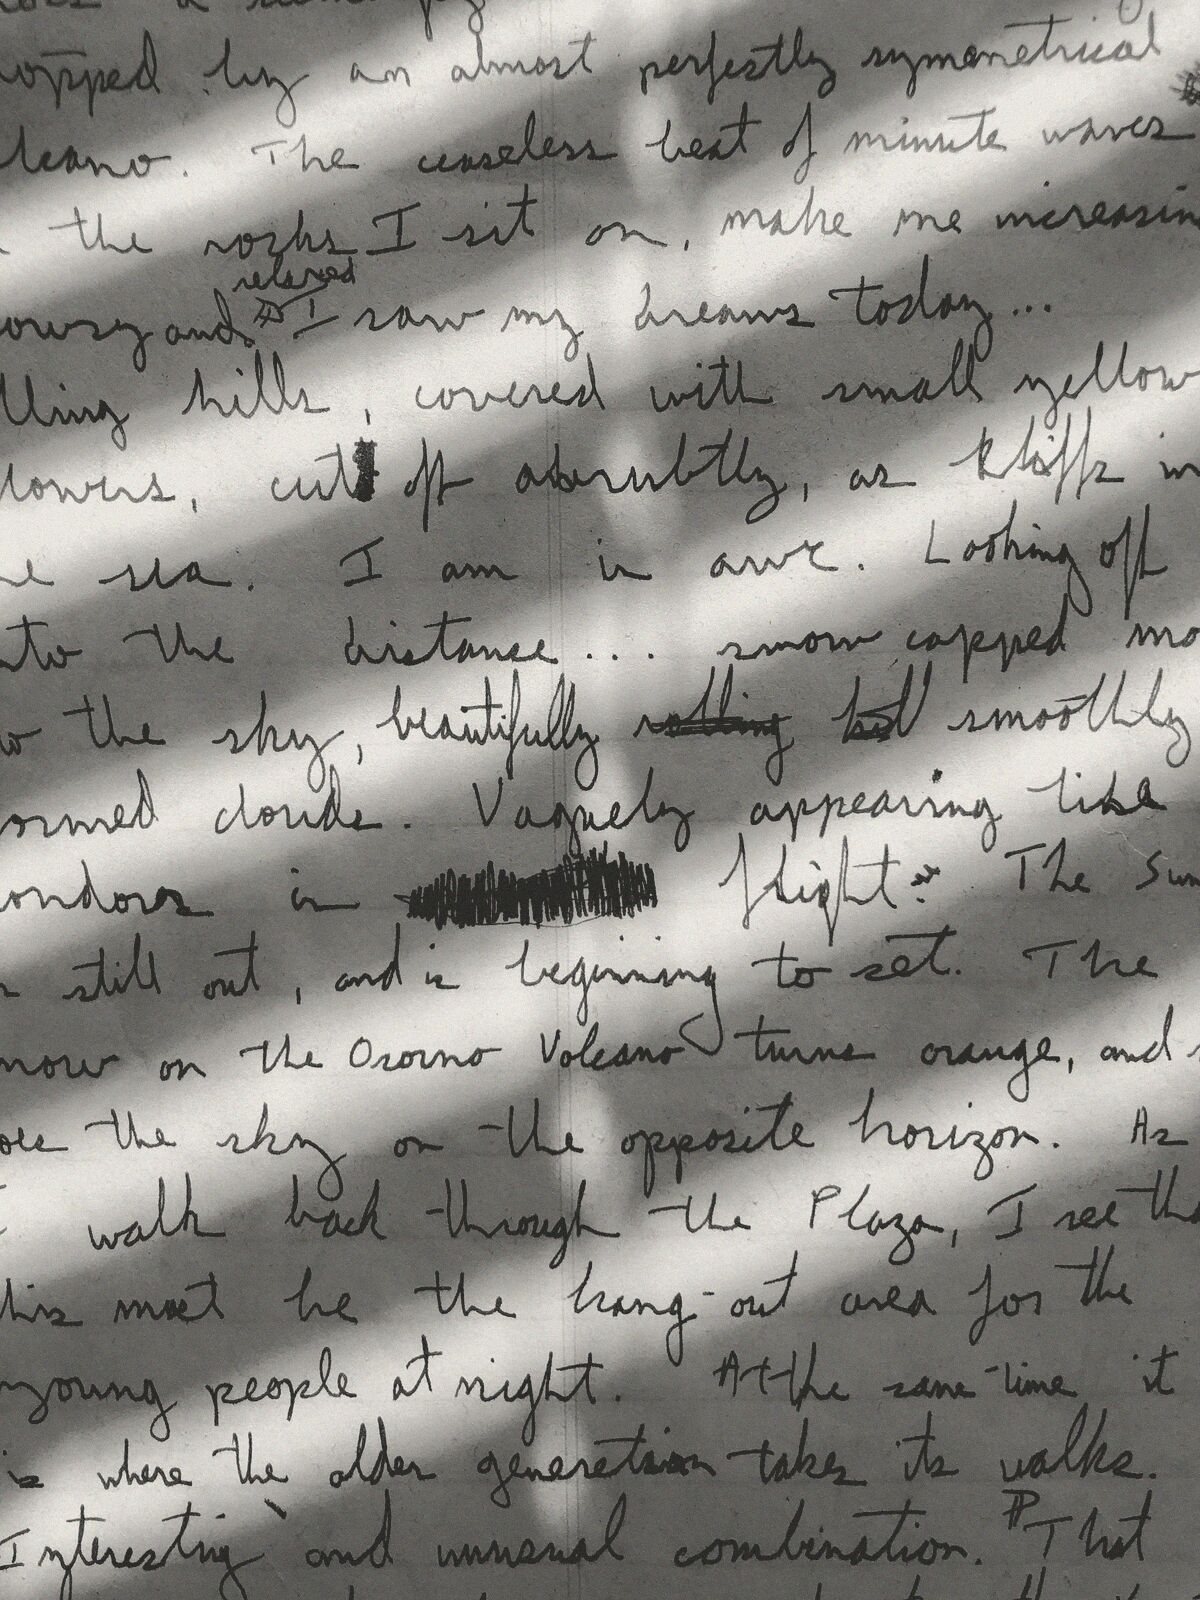 topped by an almost perfectly symmetrical
lcano. The ceaseless beat of minute waves
the rocks I sit on, make me increasin
relaxed
owsy and I saw my dreams today...
lling hills, covered with small yellow
lowers, cut off abrubtly, as kliffs in
he sea. I am in awe. Looking off
nto the distance... snow capped mo
to the sky, beautifully rolling hill smoothly
ormed clouds. Vaguely appearing like
ondors in flight. The Sun
still out, and is beginning to set. The
now on the Osorno Volcano turns orange, and
oes the sky on the opposite horizon. As
I walk back through the Plaza, I see tha
this must be the hang-out area for the
young people at night. At the same time it
is where the older generation takes its walks.
Interesting and unusual combination. That